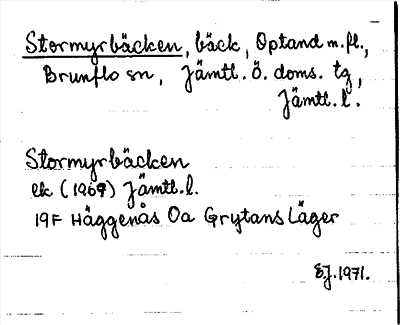 Stormyrbäcken, bäck, Optand m.fl.,
Brunflo sn, Jämtl. ö. doms. tg,
Jämtl. l.
Stormyrbäcken
ek (1969) Jämtl. l.
19F Häggenås Oa Grytans Läger
E.J. 1971.